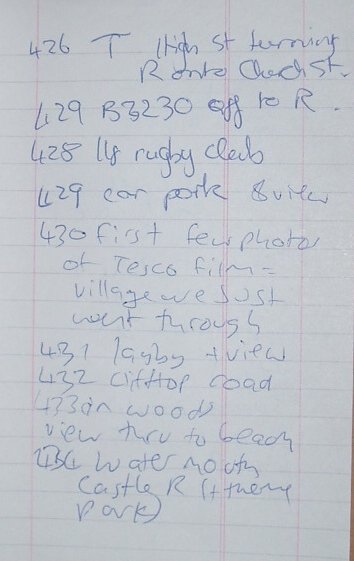 426 T High St turning
R onto Church St.
429 B3230 off to R.
428 rugby club
429 car park & view
430 first few photos
of Tesco film =
village we just
went through
431 layby + view
432 clifftop road
433 in woods
view thru to beach
434 Watermouth
Castle R (+ theme
park)